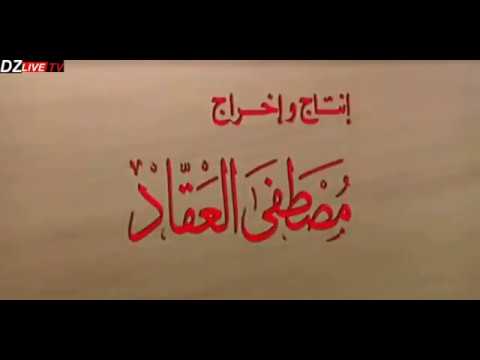 DZLIVE TV
إنتاج وإخراج
مُصْطَفىَ العَقّاد